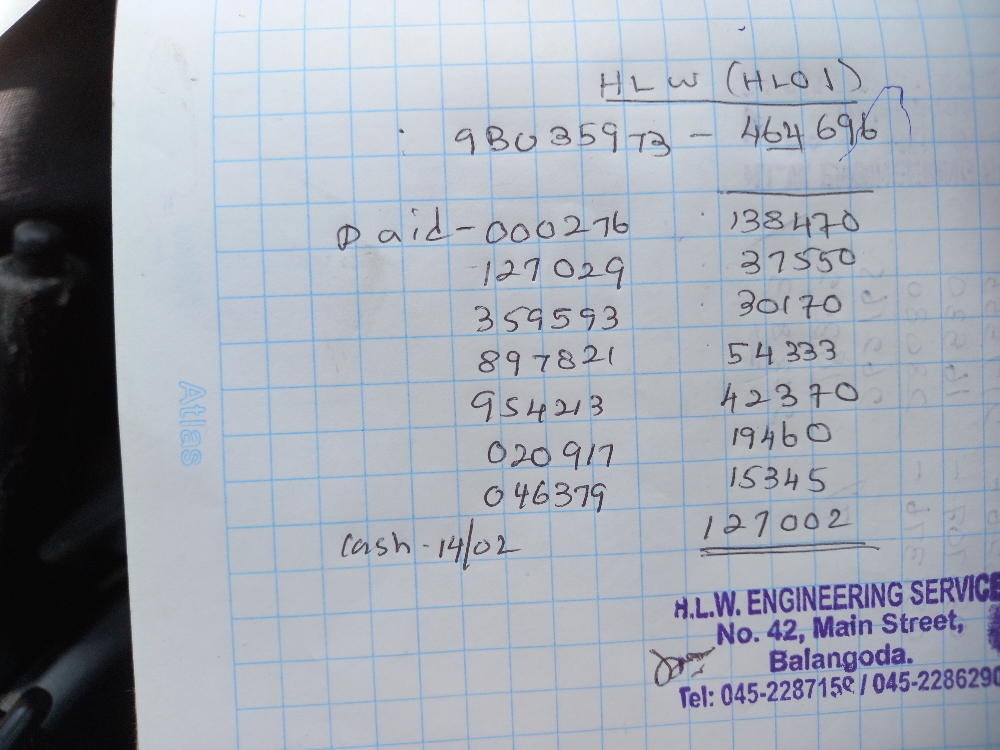 HLW (HL01)
9B035973 - 464696
Paid - 000276 138470
127029 37550
359593 30170
897821 54333
954213 42370
020917 19460
046379 15345
Cash - 14/02 127002
Atlas
H.L.W. ENGINEERING SERVICE
No. 42, Main Street,
Balangoda.
Tel: 045-2287158 / 045-2286290